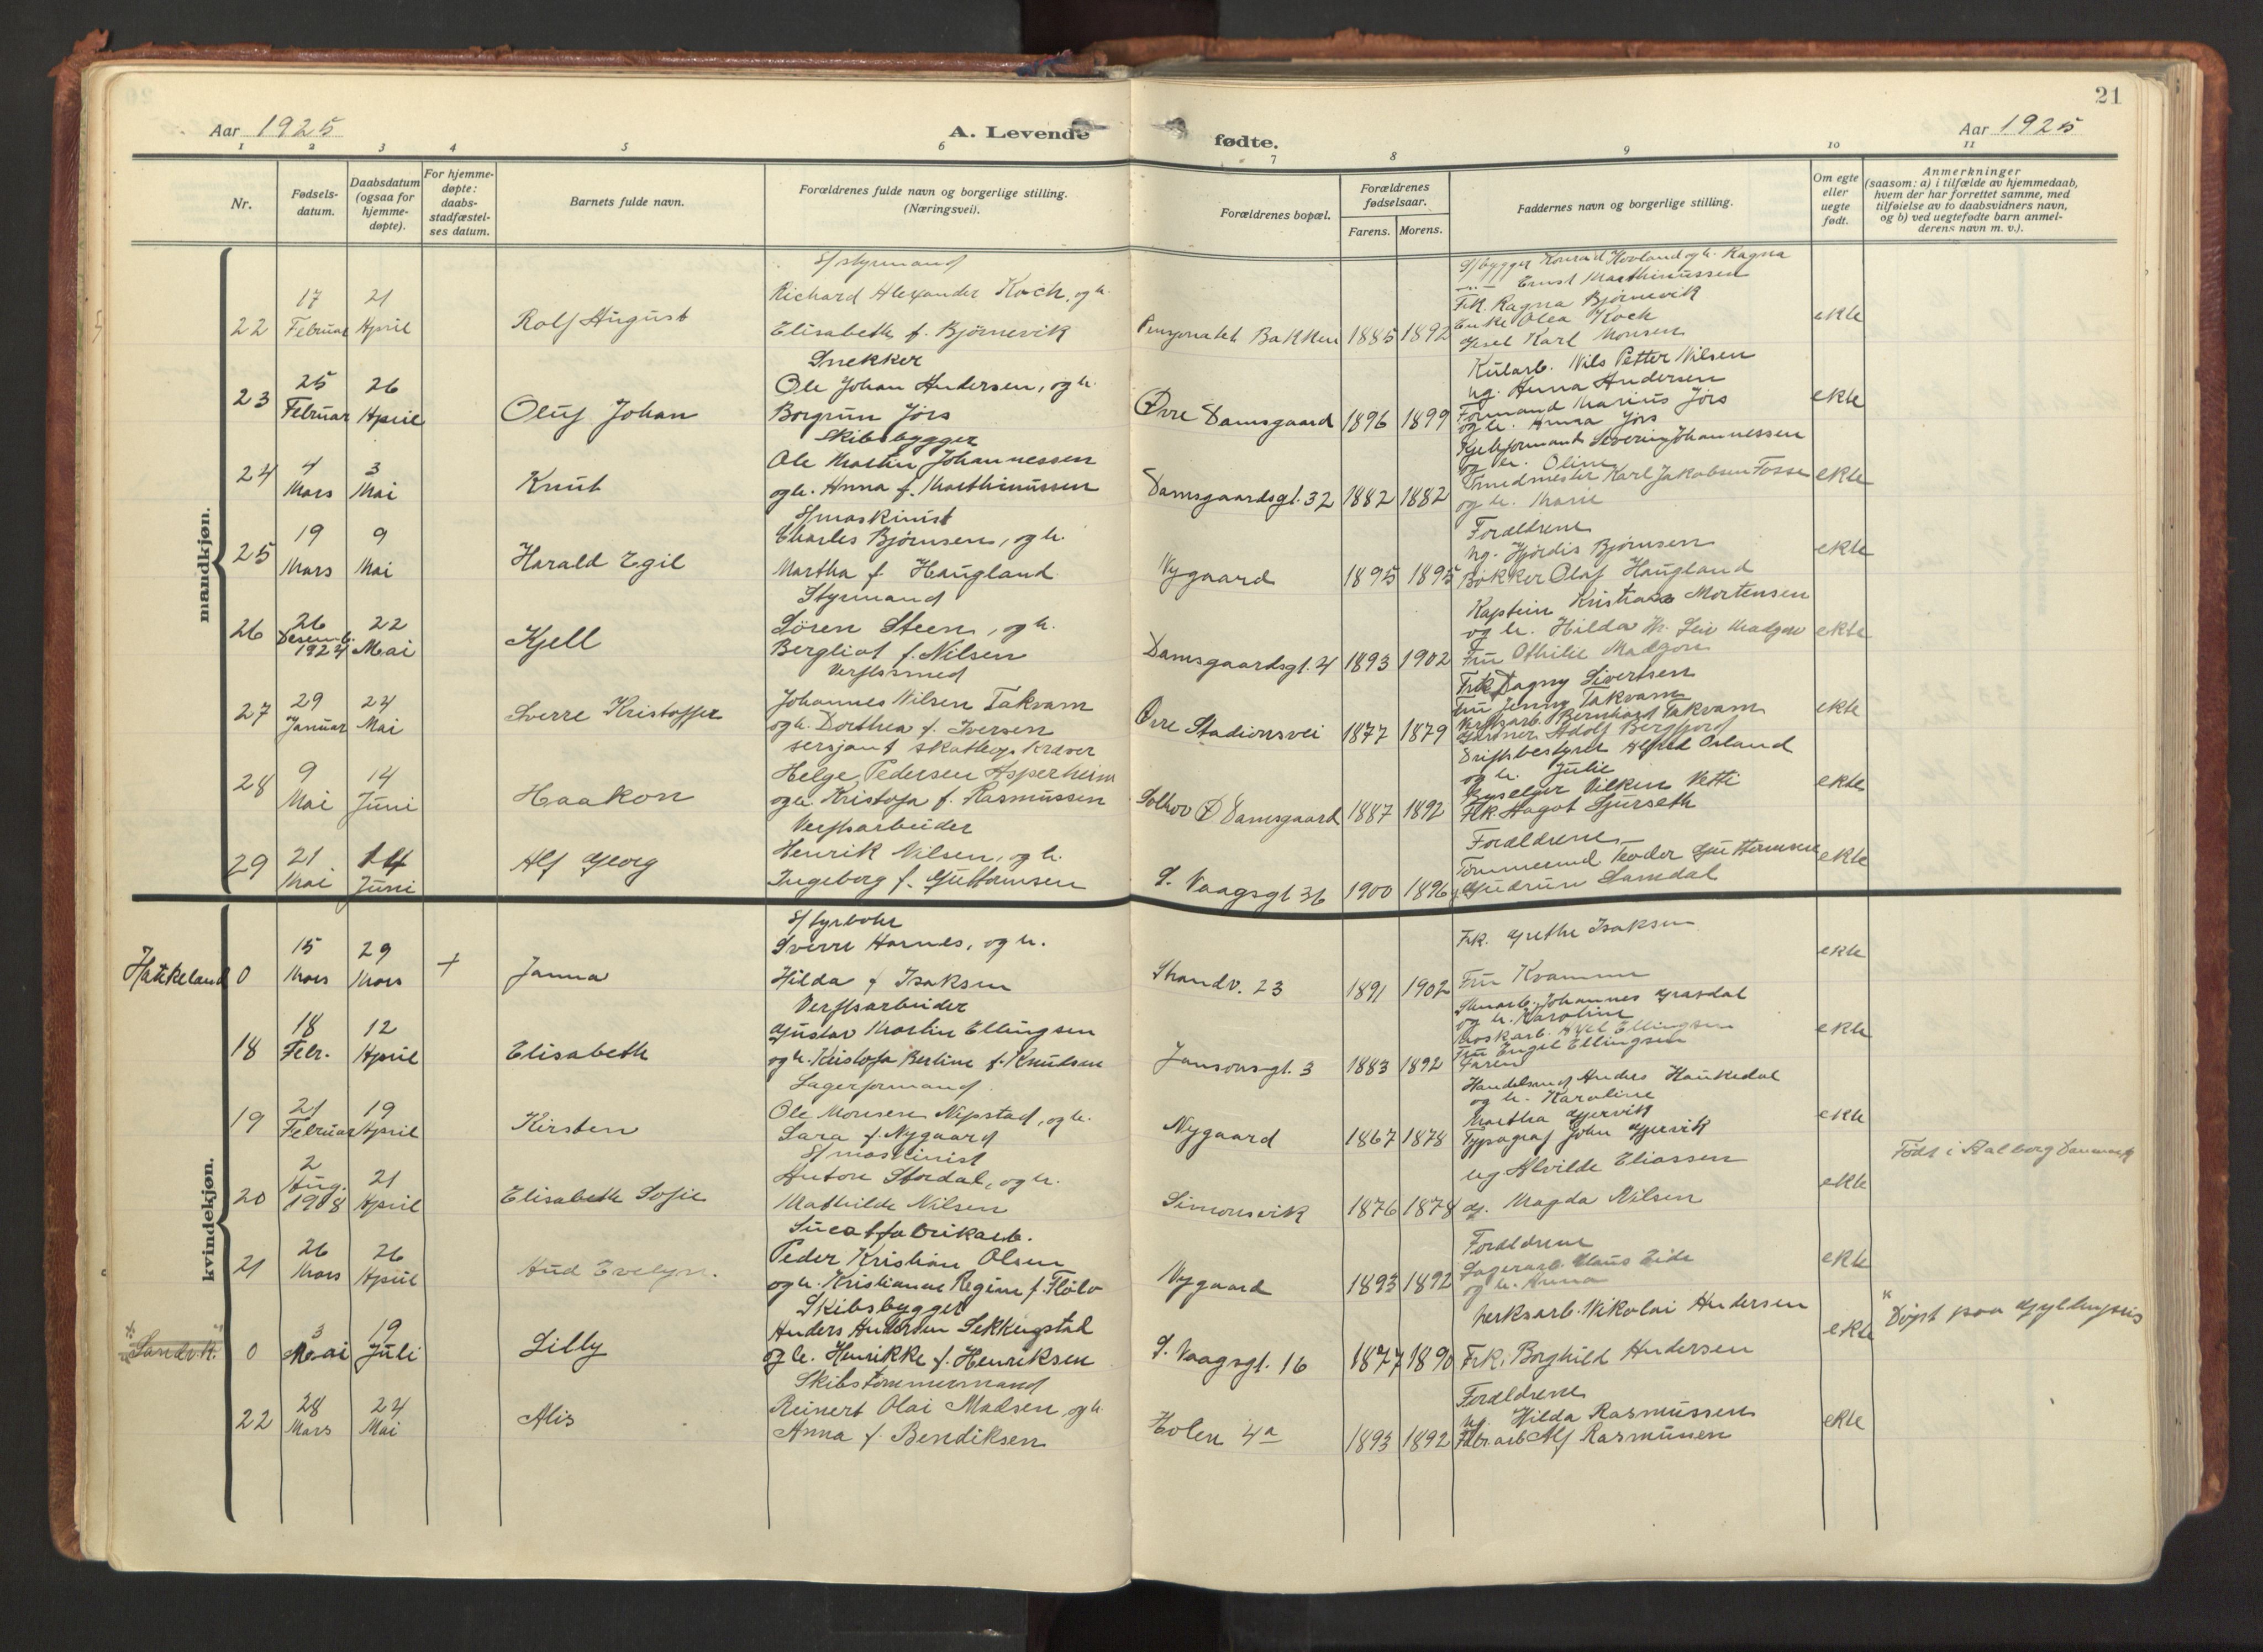 21
Aar 1925
A. Levende fødte.
Aar 1925
1 2 3 4 5 6 7 8 9 10 11
Nr.
Fødsels-
datum.
Daabsdatum
(ogsaa for
hjemme-
døpte).
For hjemme-
døpte:
daabs-
stadfæstel-
ses datum.
Barnets fulde navn.
Forældrenes fulde navn og borgerlige stilling.
(Næringsvei).
Forældrenes bopæl.
Forældrenes
fødselsaar.
Farens. Morens.
Faddernes navn og borgerlige stilling.
Om egte
eller
uegte
født.
Anmerkninger
(saasom: a) i tilfælde av hjemmedaab,
hvem der har forrettet samme, med
tilføielse av to daabsvidners navn,
og b) ved uegtefødte barn anmel-
derens navn m. v.).
mandkjøn.
22
17
Februar
21
April
Rolf August
S/styrmand
Richard Alexander Koch, og h.
Elisabeth f. Bjørnevik
Pensjonatet Bakken
1885 1892
S/bygger Konrad Hovland og h. Ragna
Ernst Marthinussen
Frk. Ragna Bjørnevik
Enke Olea Koch
Karl Monsen
ekte
23
25
Februar
26
April
Oluf Johan
Snekker
Ole Johan Andersen, og h.
Borgrun Jørs
Øvre Damsgaard
1896 1899
Kularb. Nils Petter Nilsen
ug. Anna Andersen
Formand Marius Jørs
og h. Anna Jørs
ekte
24
4
Mars
3
Mai
Knut
Skibsbygger
Ole Martin Johannessen
og h. Anna f. Marthinussen
Damsgaardsgt. 32
1882 1882
Kjelformand Severin Johannessen
og h. Oline
Smedmester Karl Jakobsen Fosse
og h. Marie
ekte
25
19
Mars
9
Mai
Harald Egil
S/maskinist
Charles Bjørnsen, og h.
Martha f. Haugland
Nygaard
1895 1895
Forældrene
ug. Hjørdis Bjørnsen
Bøkker Olaf Haugland
ekte
26
26
Desemb.
1924
22
Mai
Kjell
Styrmand
Søren Steen, og h.
Bergliot f. Nilsen
Damsgaardsgt. 4
1893 1902
Kaptein Kristian Mortensen
og h. Hilda
Fru Othilie
ekte
27
29
Januar
24
Mai
Sverre Kristoffer
Verftssmed
Johannes Nilsen Takvam
og h. Dorthea f. Iversen
Øvre Stadionsvei
1877 1879
Frk. Dagny Sivertsen
Fru Jenny Takvam
Verftsarb. Bernhard Takvam
Gartner Adolf
ekte
28
9
Mai
14
Juni
Haakon
sersjant skatteopkræver
Helge Pedersen Asperheim
og h. Kristofa f. Rasmussen
Solhov Ø Damsgaard
1887 1892
Driftsbestyrer Alfred Osland
og h. Julie
Vilken Vetti
Frk. Aagot Sjurseth
ekte
29
21
Mai
14
Juni
Alf Georg
Verftsarbeider
Henrik Nilsen, og h.
Ingeborg f. Guttormsen
S. Vaagsgt 36
1900 1896
Forældrene
Tømmermd Peder Guttormsen
Gudrun Samdal
ekte
kvindekjøn.
Haukeland
0
15
Mars
29
Mars
+
Janna
S/fyrbøter
Sverre Harnes, og h.
Hilda f Isaksen
Strandv. 23
1891 1902
Frk. Grethe Isaksen
Fru Kvamme
ekte
18
18
Febr.
12
April
Elisabeth
Verftsarbeider
Gustav Martin Ellingsen
og h. Kristofa Bertine f. Knudsen
Jansonsgt. 3
1883 1892
Johannes Grasdal
og h. Karoline
Maskarb. Axel Ellingsen
Fru Engel Ellingsen
Faren
ekte
19
21
Februar
19
April
Kirsten
Lagerformand
Ole Monsen Nipstad, og h.
Sara f. Nygaard
Nygaard
1867 1878
Handelsmd Anders Haukedal
og h. Karoline
Martha Gjervik
Typograf John Gjervik
ekte
20
2
Aug.
1908
21
April
Elisabeth Sofie
S/maskinist
Anton Stordal, og h.
Mathilde Nilsen
Simonsvik
1876 1878
ug Alvilde Eliassen
g. Magda Nilsen
ekte
Født i Aalborg Danmark
21
26
Mars
26
April
Aud Evelyn.
Peder Kristian Olsen
og h. Kristianne Regine f. Fløtv
Nygaard
1893 1892
Forældrene
Lagerarb. Claus Eide
og h. Anna
ekte
Sandv.k.
0
3
Mai
19
Juli
Lilly
Skibsbygger
Anders Andersen Sekkingstad
og h. Henrikke f. Henriksen
S. Vaagsgt. 16
1877 1890
Verksarb. Nikolai Andersen
Frk. Borghild Andersen
ekte
Døpt paa
22
28
Mars
24
Mai
Alis
Skibstømmermand
Reinert Olai Madsen, og h.
Anna f. Bendiksen
Holen 4a
1893 1892
Forældrene
ug. Hilda Rasmussen
Fabr.arb Alf Rasmussen
ekte